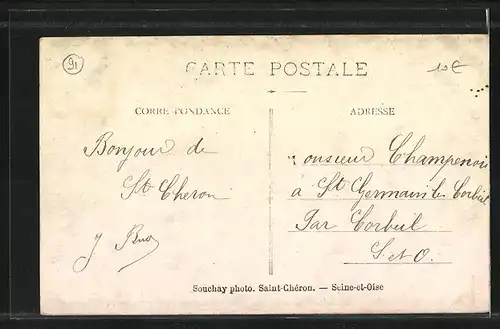 91
CARTE POSTALE
10€
CORRESPONDANCE
ADRESSE
Bonjour de
St Cheron
Monsieur Champenois
à St Germain les Corbeil
Par Corbeil
S et O.
Souchay photo. Saint-Chéron. — Seine-et-Oise